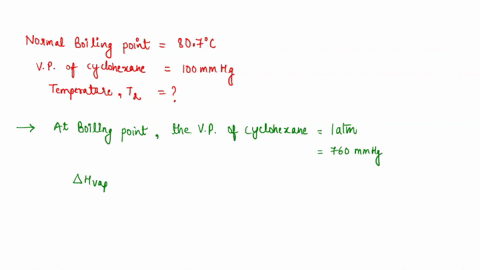 Normal Boiling point = 80.7°C
V.P. of cyclohexane = 100 mm Hg
Temperature, T₂ = ?
→ At Boiling point, the V.P. of cyclohexane = 1 atm
= 760 mmHg
ΔHvap